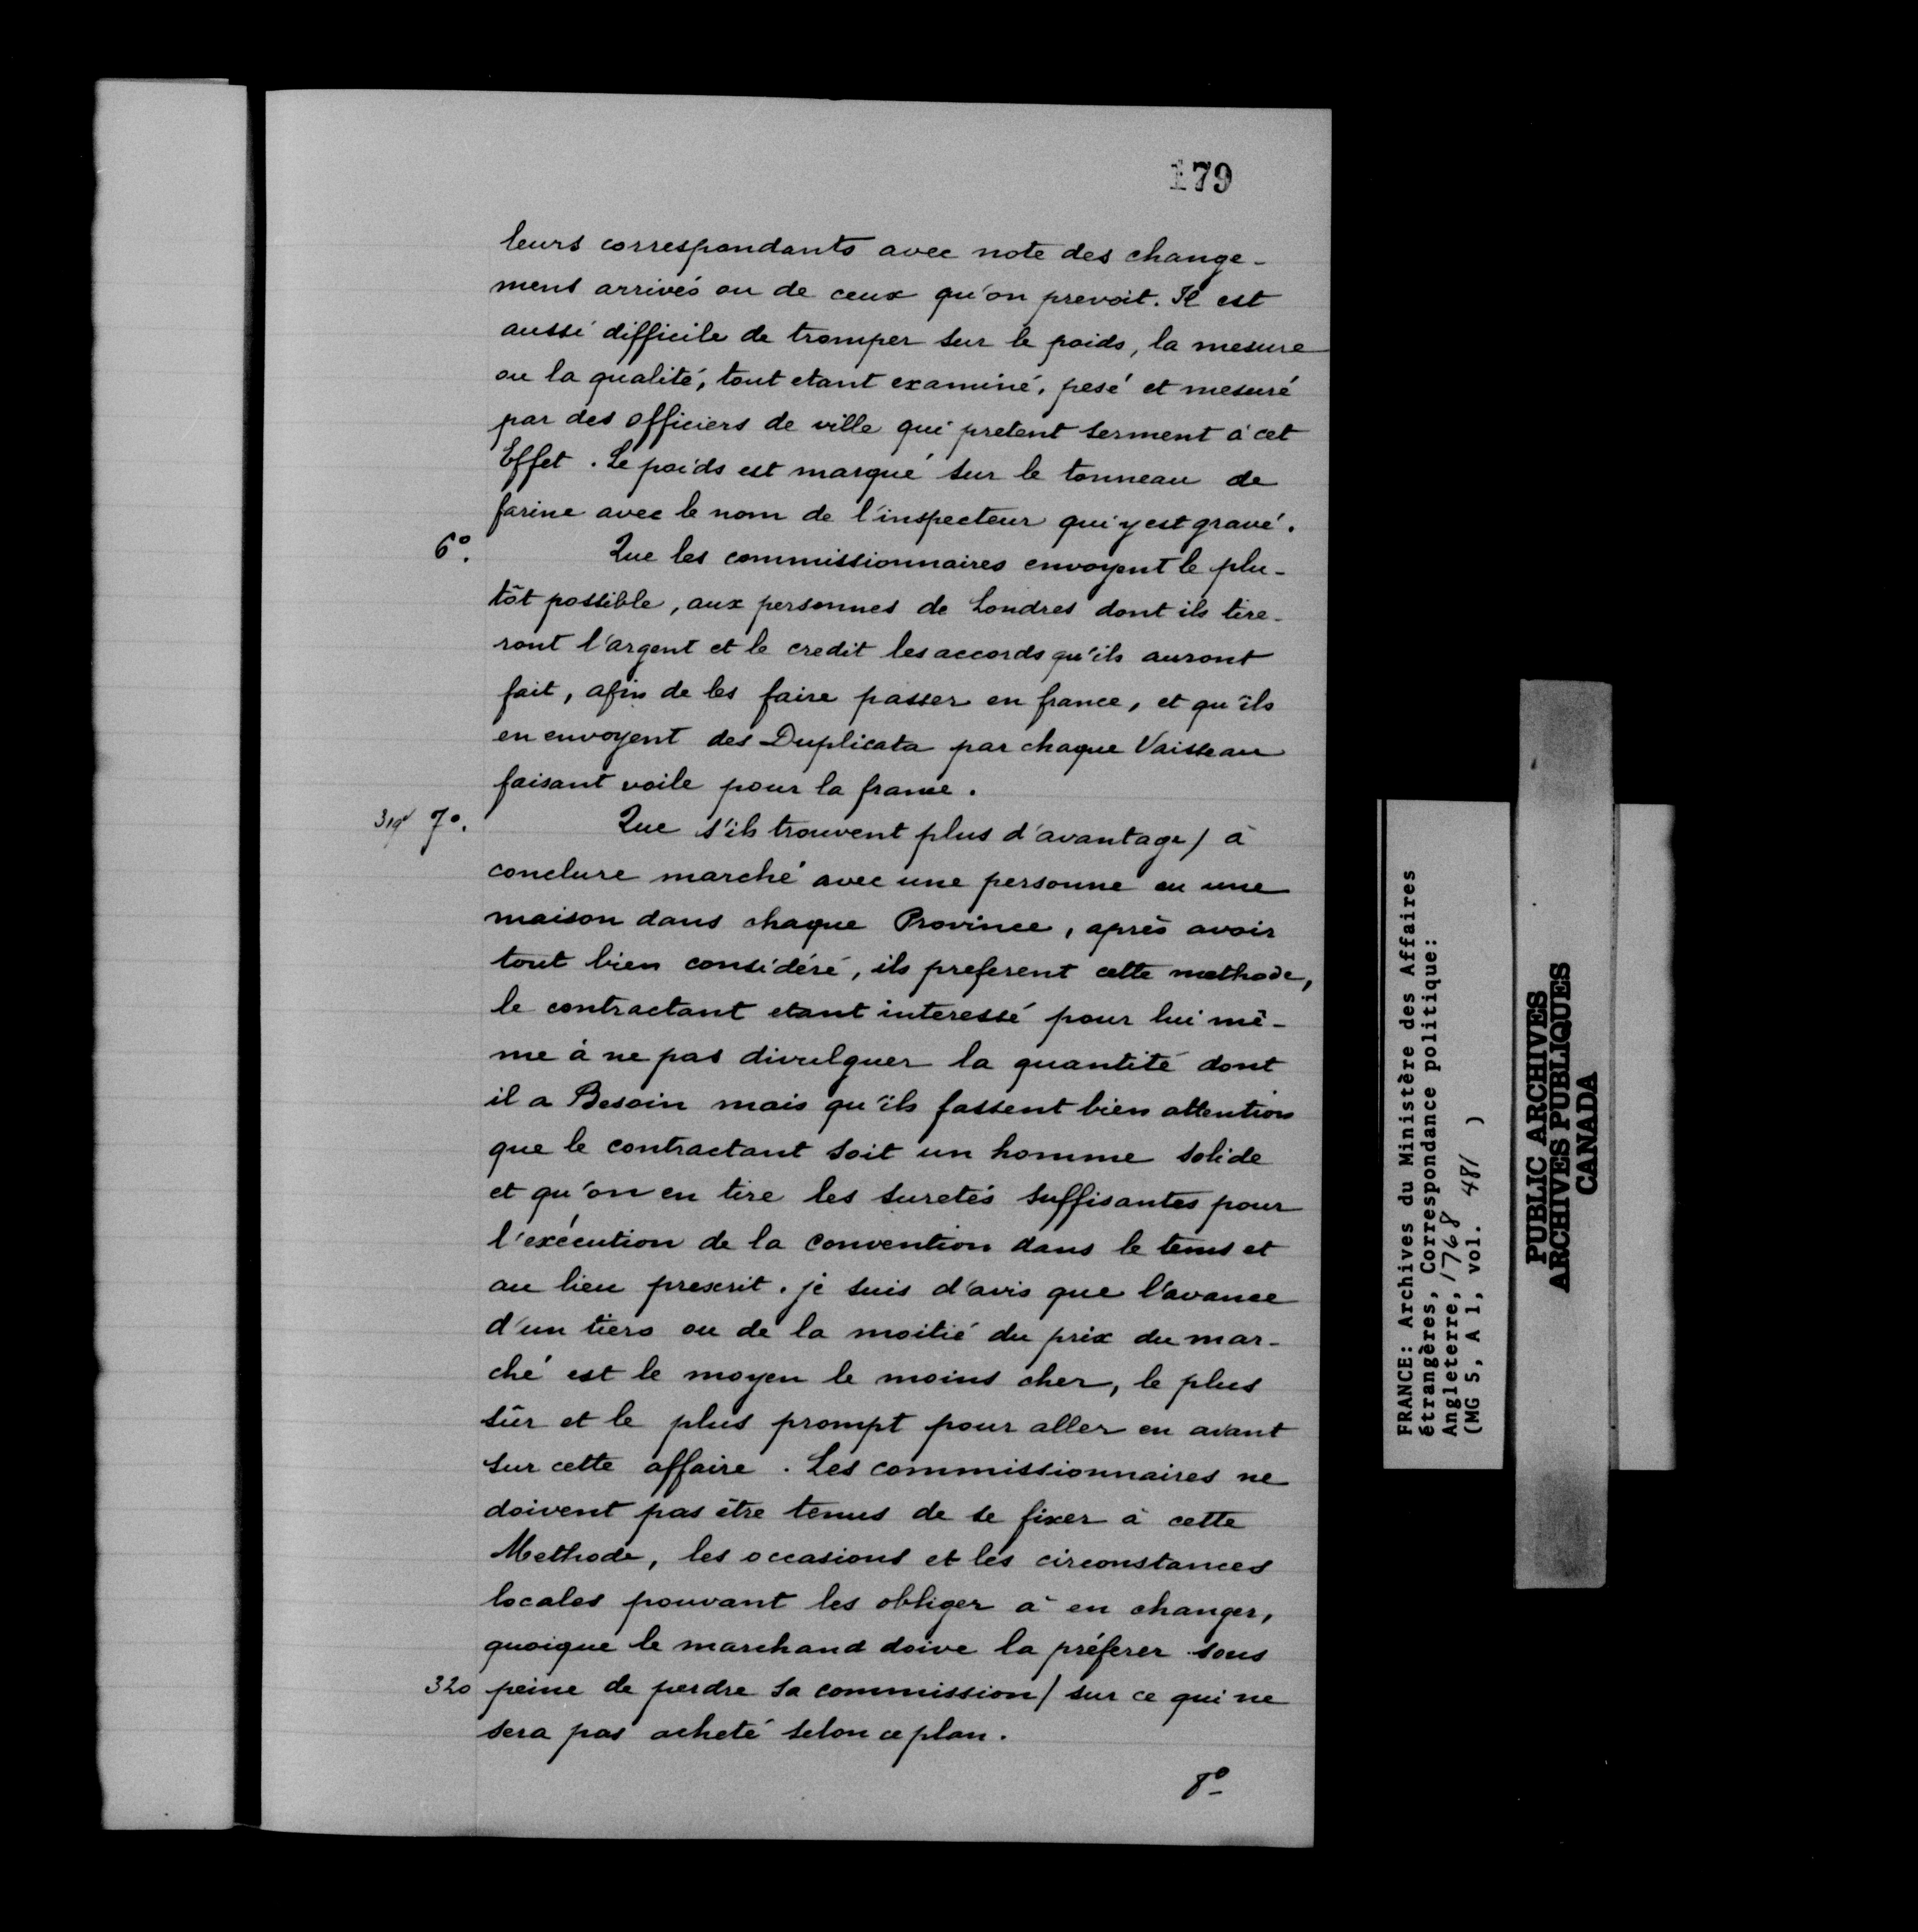 179
leurs correspondants avec note des change-
mens arrivés ou de ceux qu'on prevoit. Il est
aussi difficile de tromper sur le poids, la mesure
ou la qualité, tout etant examiné, pesé et mesuré
par des officiers de ville qui pretent serment à cet
Effet. Le poids est marqué sur le tonneau de
farine avec le nom de l'inspecteur qui y est gravé.
6°. Que les commissionnaires envoyent le plu-
tôt possible, aux personnes de Londres dont ils tire-
ront l'argent et le credit les accords qu'ils auront
fait, afin de les faire passer en france, et qu'ils
en envoyent des Duplicata par chaque Vaisseau
faisant voile pour la france.
319v 7°. Que s'ils trouvent plus d'avantage / à
conclure marché avec une personne ou une
maison dans chaque Province, après avoir
tout bien considéré, ils preferent cette methode,
le contractant etant interessé pour lui mê-
me à ne pas divulguer la quantité dont
il a Besoin mais qu'ils fassent bien attention
que le contractant soit un homme solide
et qu'on en tire les suretés suffisantes pour
l'exécution de la convention dans le tems et
au lieu prescrit. je suis d'avis que l'avance
d'un tiers ou de la moitié du prix du mar-
ché est le moyen le moins cher, le plus
sûr et le plus prompt pour aller en avant
sur cette affaire. Les commissionnaires ne
doivent pas être tenus de se fixer à cette
Methode, les occasions et les circonstances
locales pouvant les obliger à en changer,
quoique le marchand doive la préferer sous
320 peine de perdre sa commission / sur ce qui ne
sera pas acheté selon ce plan.
8°
FRANCE: Archives du Ministère des Affaires
étrangères, Correspondance politique:
Angleterre, 1768
(MG 5, A 1, vol. 481 )
PUBLIC ARCHIVES
ARCHIVES PUBLIQUES
CANADA